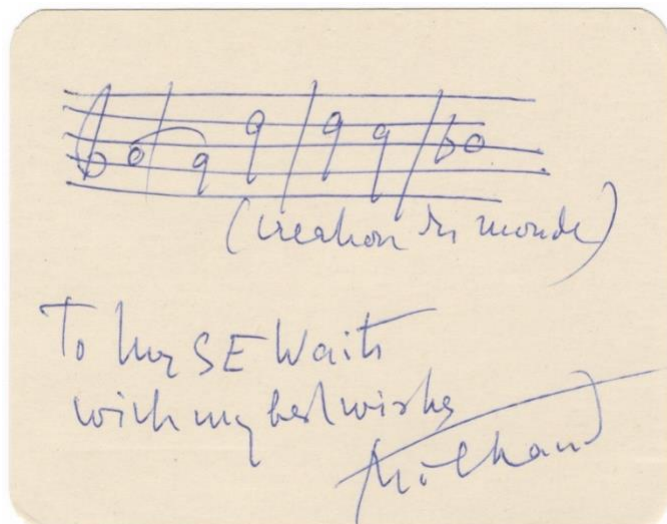 (Création du monde)
To Mrs SE Waits
with my best wishes
Milhaud